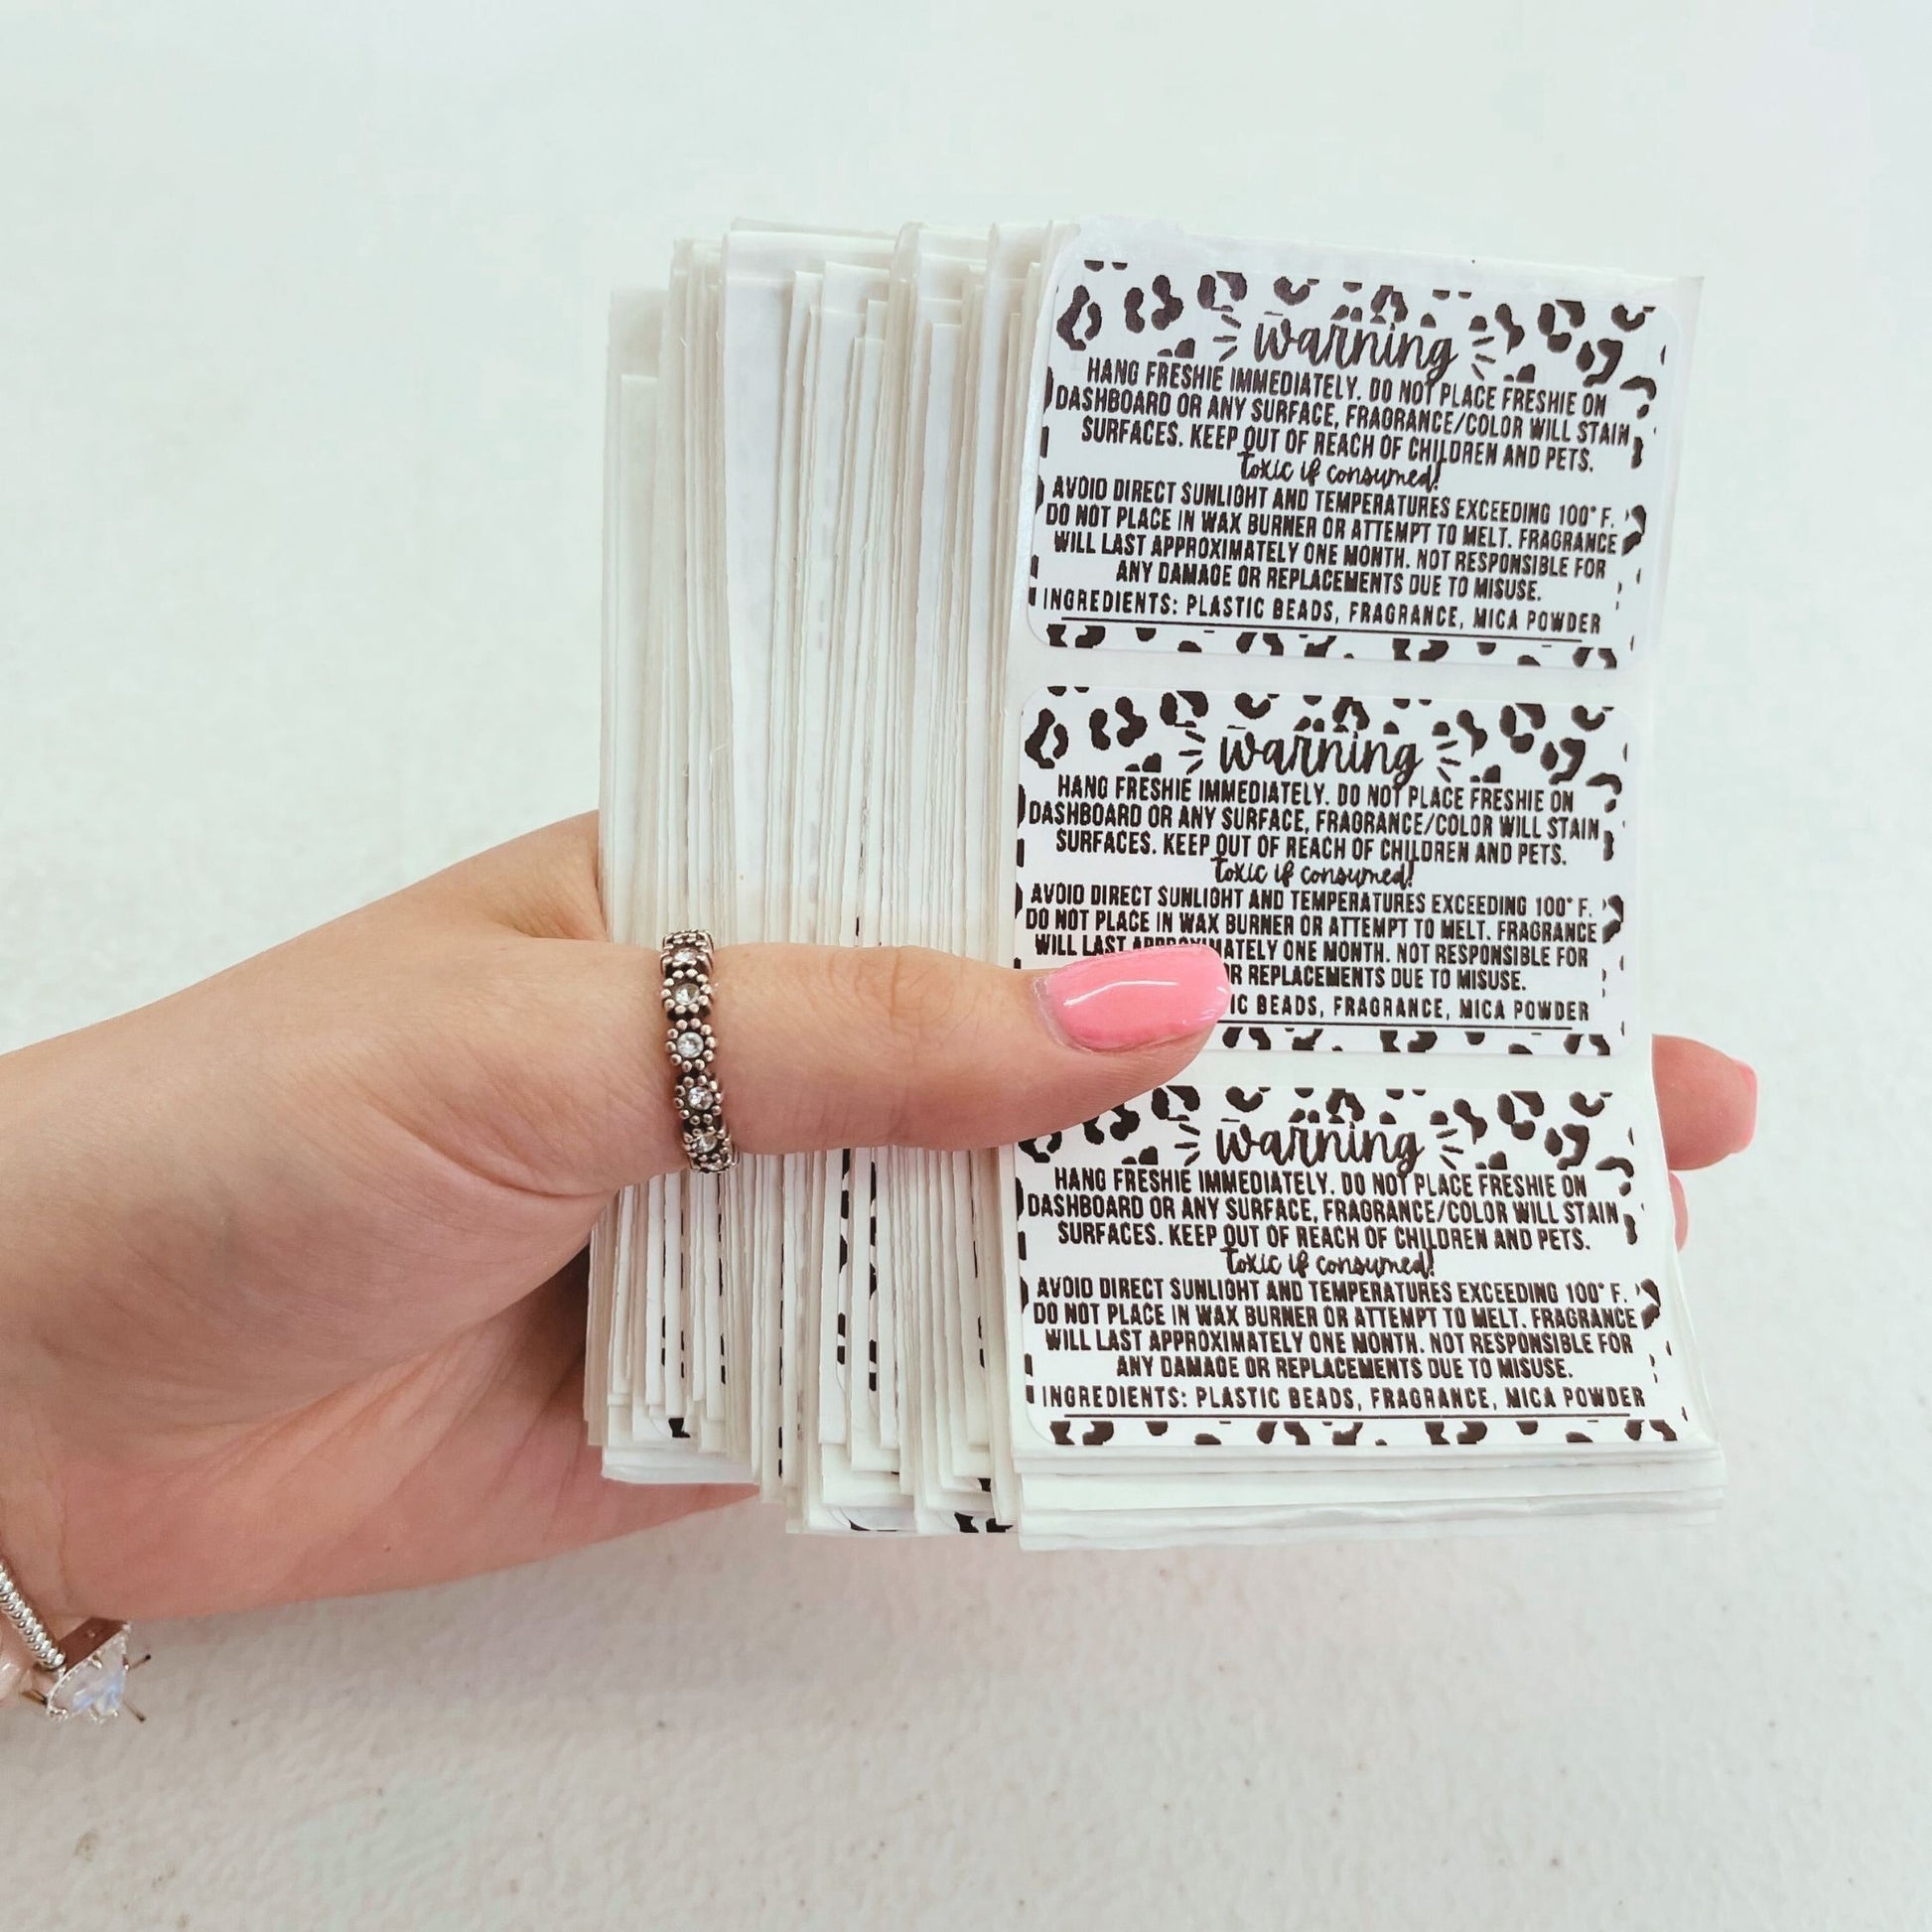 warning
HANG FRESHIE IMMEDIATELY. DO NOT PLACE FRESHIE ON
DASHBOARD OR ANY SURFACE, FRAGRANCE/COLOR WILL STAIN
SURFACES. KEEP OUT OF REACH OF CHILDREN AND PETS.
toxic if consumed!
AVOID DIRECT SUNLIGHT AND TEMPERATURES EXCEEDING 100° F.
DO NOT PLACE IN WAX BURNER OR ATTEMPT TO MELT. FRAGRANCE
WILL LAST APPROXIMATELY ONE MONTH. NOT RESPONSIBLE FOR
ANY DAMAGE OR REPLACEMENTS DUE TO MISUSE.
INGREDIENTS: PLASTIC BEADS, FRAGRANCE, MICA POWDER
warning
HANG FRESHIE IMMEDIATELY. DO NOT PLACE FRESHIE ON
DASHBOARD OR ANY SURFACE, FRAGRANCE/COLOR WILL STAIN
SURFACES. KEEP OUT OF REACH OF CHILDREN AND PETS.
toxic if consumed!
AVOID DIRECT SUNLIGHT AND TEMPERATURES EXCEEDING 100° F.
DO NOT PLACE IN WAX BURNER OR ATTEMPT TO MELT. FRAGRANCE
WILL LAST APPROXIMATELY ONE MONTH. NOT RESPONSIBLE FOR
REPLACEMENTS DUE TO MISUSE.
BEADS, FRAGRANCE, MICA POWDER
warning
HANG FRESHIE IMMEDIATELY. DO NOT PLACE FRESHIE ON
DASHBOARD OR ANY SURFACE, FRAGRANCE/COLOR WILL STAIN
SURFACES. KEEP OUT OF REACH OF CHILDREN AND PETS.
toxic if consumed!
AVOID DIRECT SUNLIGHT AND TEMPERATURES EXCEEDING 100° F.
DO NOT PLACE IN WAX BURNER OR ATTEMPT TO MELT. FRAGRANCE
WILL LAST APPROXIMATELY ONE MONTH. NOT RESPONSIBLE FOR
ANY DAMAGE OR REPLACEMENTS DUE TO MISUSE.
INGREDIENTS: PLASTIC BEADS, FRAGRANCE, MICA POWDER